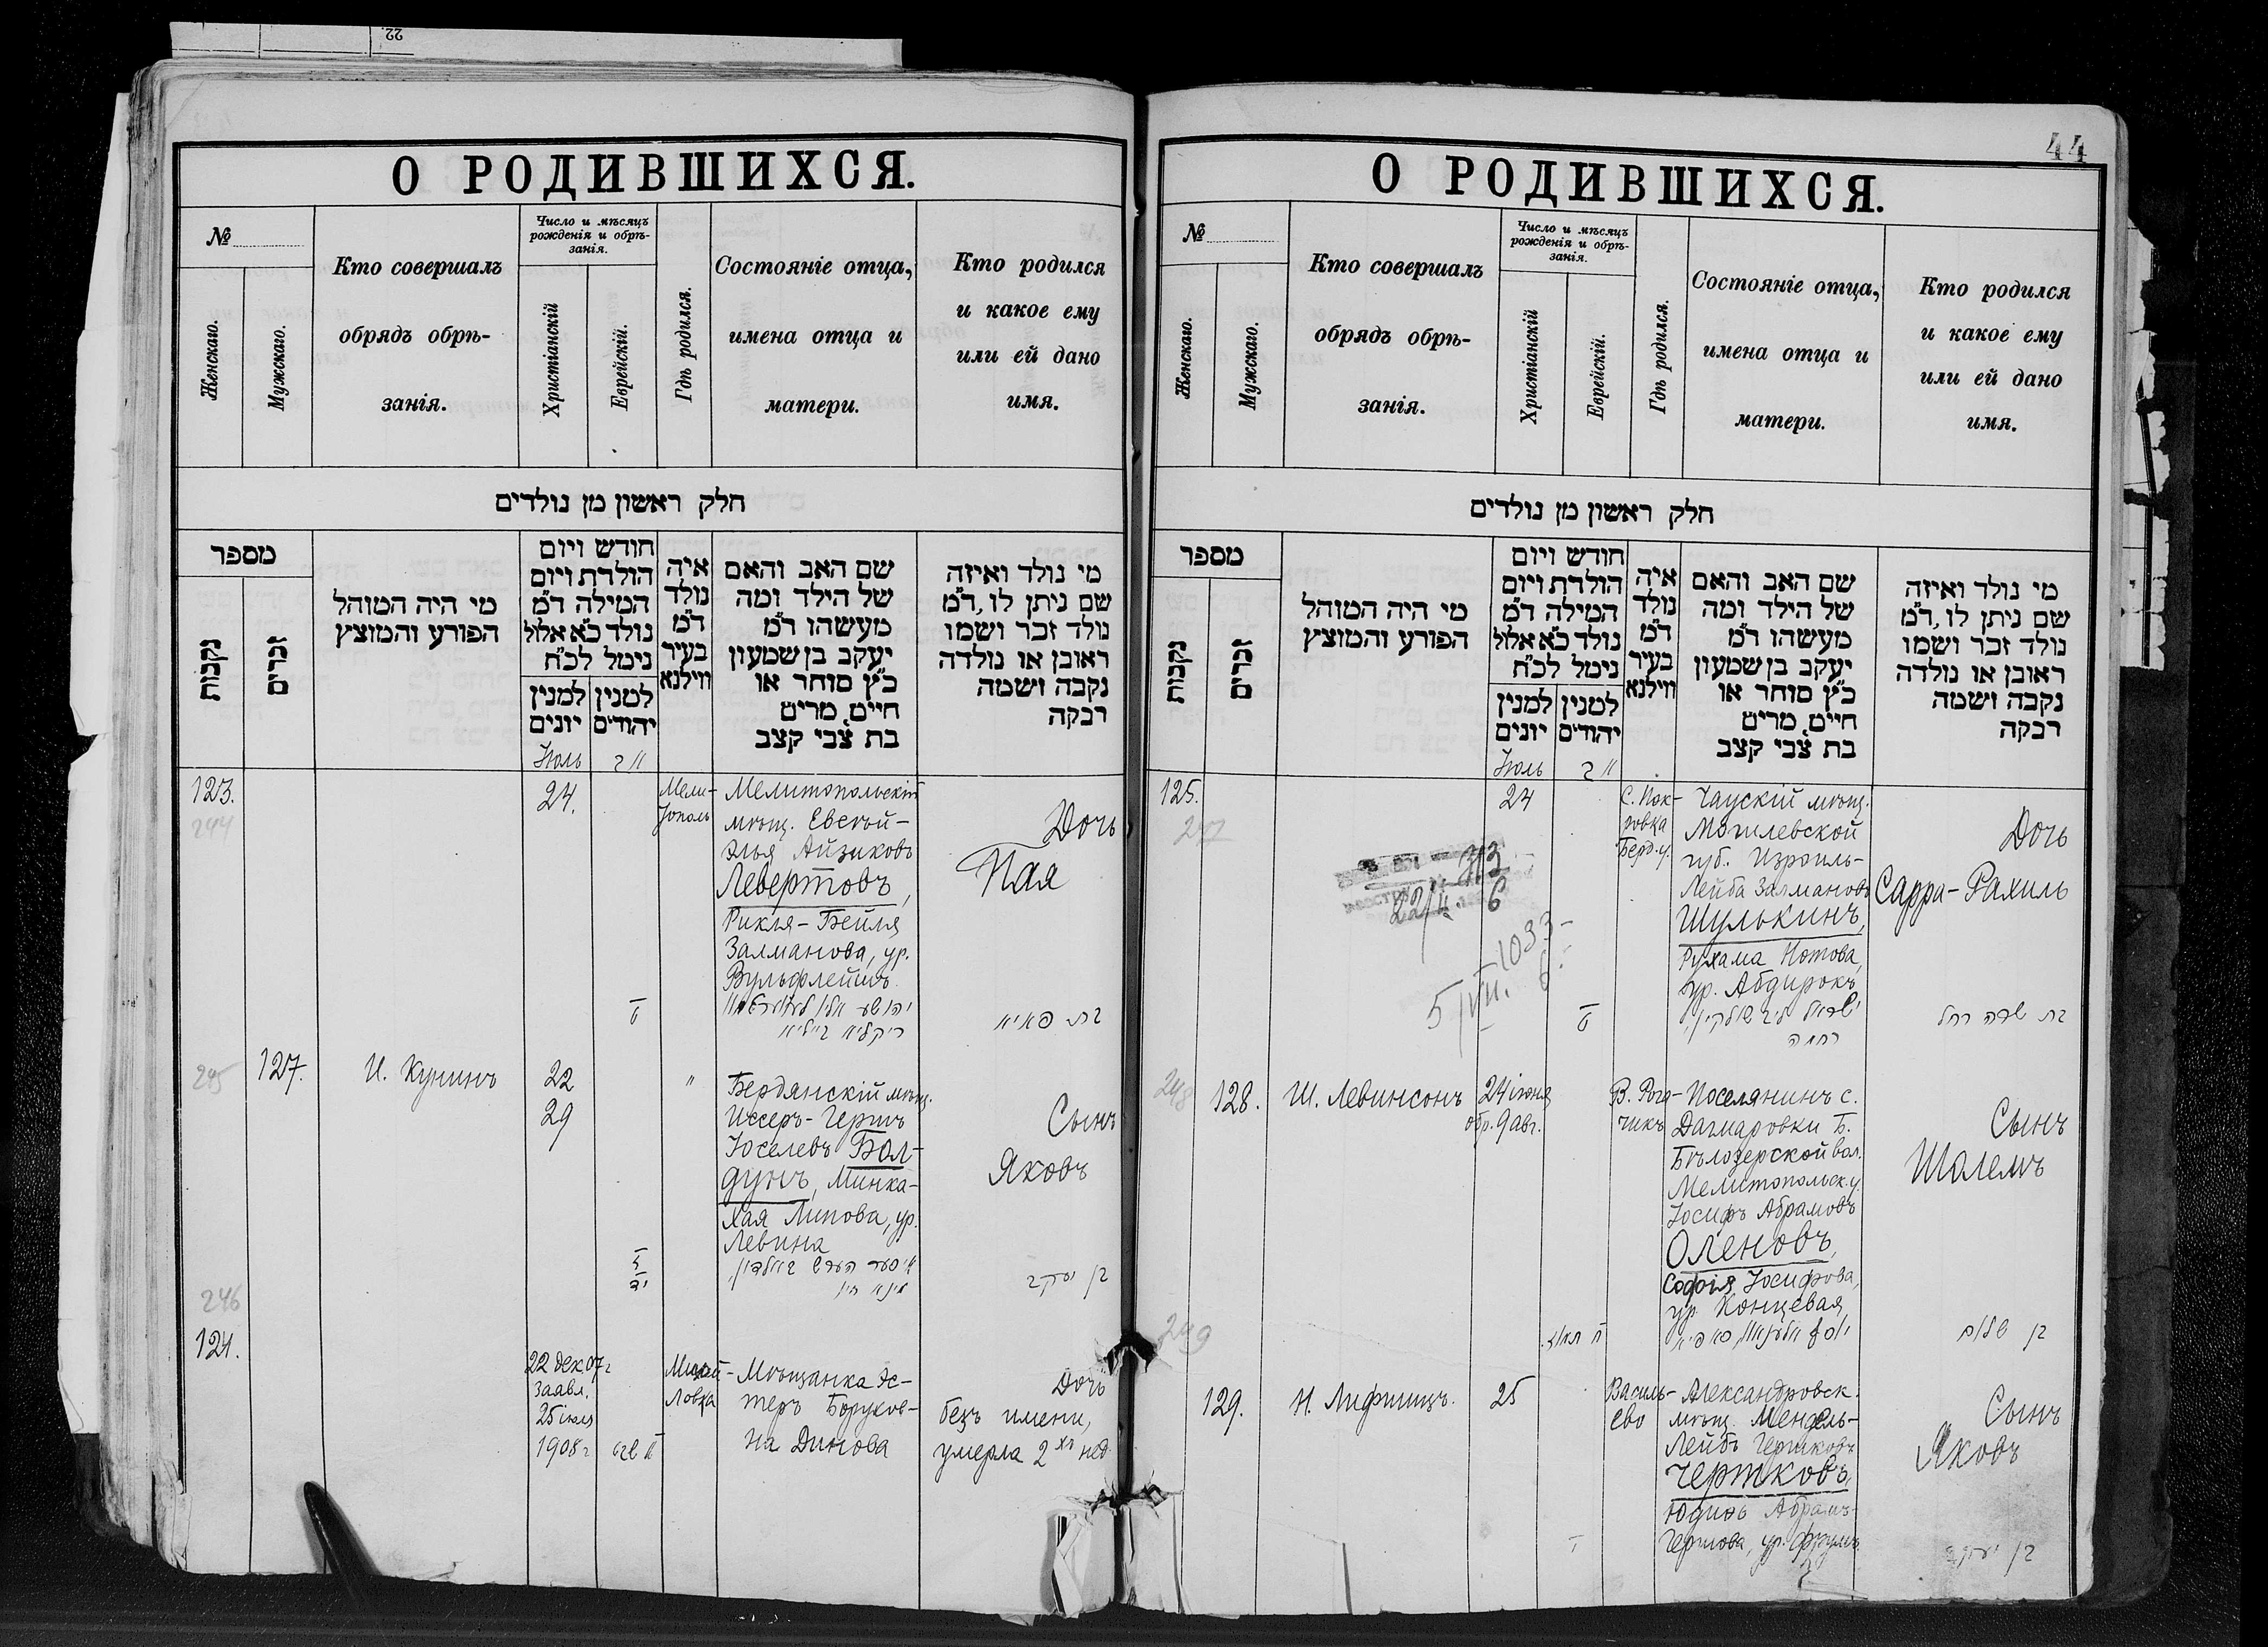 22
О РОДИВШИХСЯ.
№
Женскаго.
Мужскаго.
Кто совершалъ
обрядъ обрѣ-
занія.
Число и мѣсяцъ
рожденія и обрѣ-
занія.
Христіанскій
Еврейскій.
Гдѣ родился.
Состояніе отца,
имена отца и
матери.
Кто родился
и какое ему
или ей дано
имя.
חלק ראשון מן נולדים
מספר
נקבות
זכרים
מי היה המוהל
הפורע והמוצץ
חודש ויום
הולדת ויום
המילה ד"מ
נולד כ"א אלול
נימל לכ"ח
למנין
יונים
למנין
יהודים
איה
נולד
ד"מ
בעיר
ווילנא
שם האב והאם
של הילד ומה
מעשהו ד"מ
יעקב בן שמעון
כ"ץ סוחר או
חיים, מרים
בת צבי קצב
מי נולד ואיזה
שם ניתן לו, ד"מ
נולד זכר ושמו
ראובן או נולדה
נקבה ושמה
רבקה
Іюль
123.
244
24.
Мели-
тополь
Мелитопольскій
мѣщ. Евсѣй-
Элья Айзиковъ
Левертовъ,
Рикля-Бейля
Залманова, ур.
Вульфлейшъ
ריקליא ביילא
Дочь
Пая
בת פאיא
245
127.
И. Кунинъ
22
29
"
Бердянскій мѣщ.
Иссеръ-Гершъ
Іоселевъ Бол-
дунъ, Минка-
Хая Липова, ур.
Левина
Сынъ
Яковъ
בן יעקב
246
124.
22 дек. 07 г
заявл.
25 іюля
1908 г
Михай-
ловка
Мѣщанка Эс-
теръ Борухов-
на Динова
Дочь
безъ имени,
умерла 2хъ нед.
44
О РОДИВШИХСЯ.
№
Женскаго.
Мужскаго.
Кто совершалъ
обрядъ обрѣ-
занія.
Число и мѣсяцъ
рожденія и обрѣ-
занія.
Христіанскій
Еврейскій.
Гдѣ родился.
Состояніе отца,
имена отца и
матери.
Кто родился
и какое ему
или ей дано
имя.
חלק ראשון מן נולדים
מספר
נקבות
זכרים
מי היה המוהל
הפורע והמוצץ
חודש ויום
הולדת ויום
המילה ד"מ
נולד כ"א אלול
נימל לכ"ח
למנין
יונים
למנין
יהודים
איה
נולד
ד"מ
בעיר
ווילנא
שם האב והאם
של הילד ומה
מעשהו ד"מ
יעקב בן שמעון
כ"ץ סוחר או
חיים, מרים
בת צבי קצב
מי נולד ואיזה
שם ניתן לו, ד"מ
נולד זכר ושמו
ראובן או נולדה
נקבה ושמה
רבקה
Іюль
125.
247
24
С. Пок-
ровка
Берд. у.
Чаускій мѣщ.
Могилевской
губ. Израиль-
Лейба Залмановъ
Шулькинъ,
Рухама Нотова,
ур. Абдирокъ
ישראל ליב שולקין,
רחמה
Дочь
Сарра-Рахиль
בת שרה רחל
248
128.
Ш. Левинсонъ
24 іюня
обр. 9 авг.
В. Рога-
чикъ
Поселянинъ с.
Дагмаровки Б.
Бѣлозерской вол.
Мелитопольск. у.
Іосифъ Абрамовъ
Оленовъ,
Софія Іосифова,
ур. Концевая
Сынъ
Шолемъ
בן שלום
249
129.
Н. Лифшицъ.
25
Василь-
ево
Александровск.
мѣщ. Мендель-
Лейбъ Гершковъ
Чертковъ,
Юдиѳь Абрамъ-
Гершова, ур. Фрумъ
Сынъ
Яковъ
בן יעקב